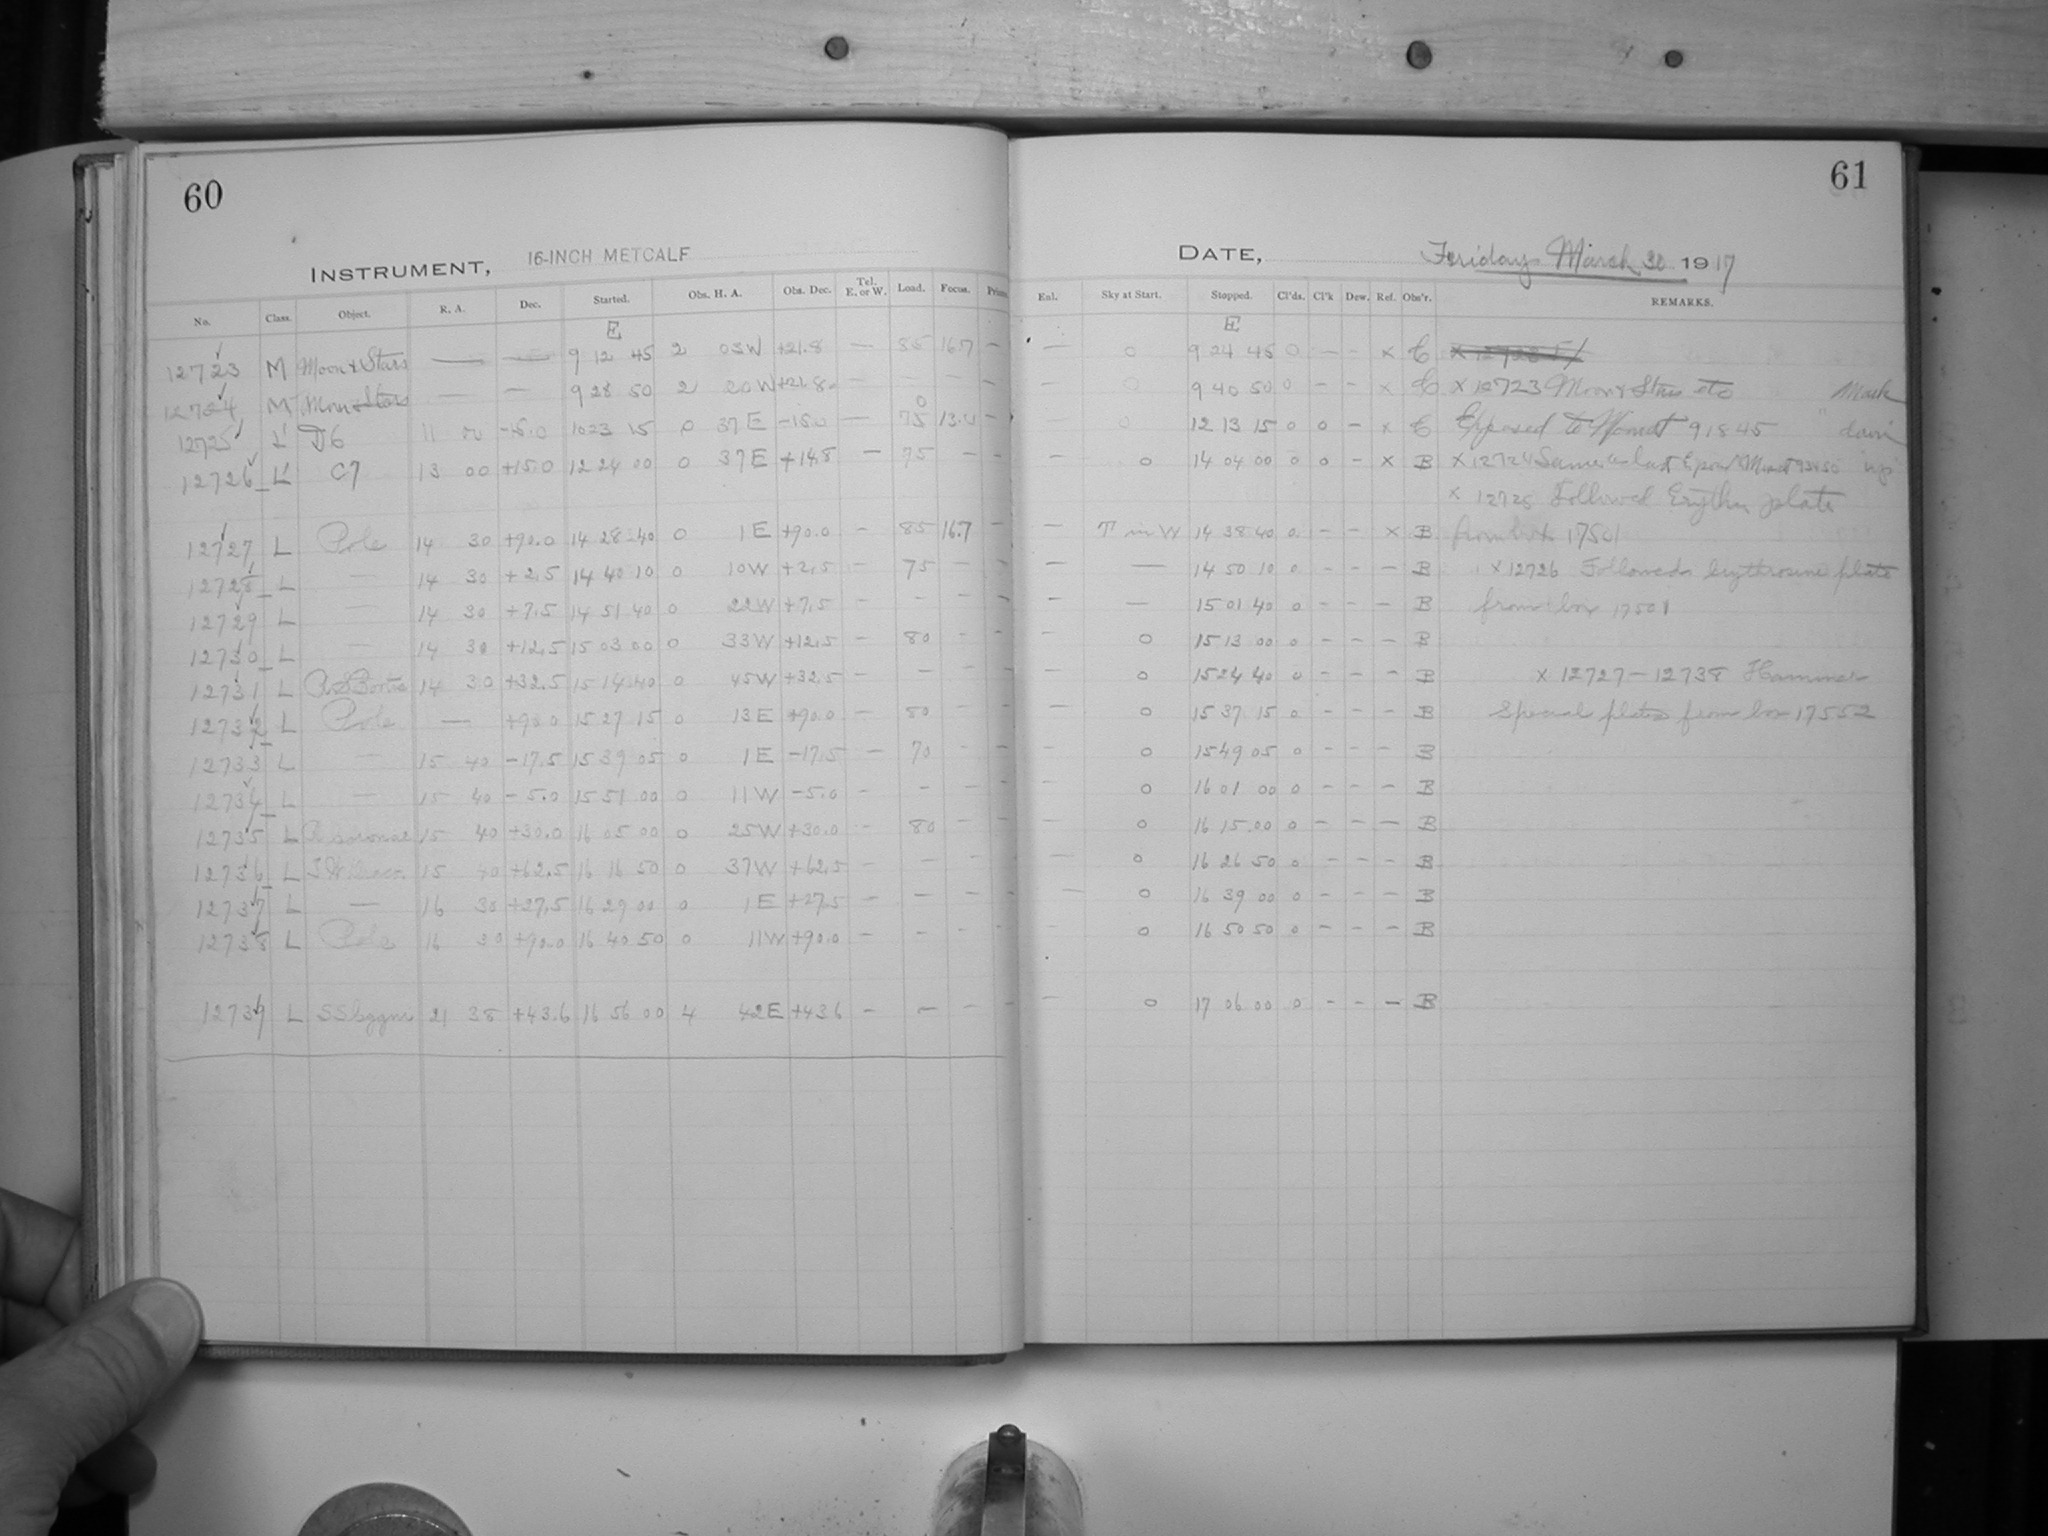 60
INSTRUMENT, 16-INCH METCALF
No. Class. Object. R. A. Dec. Started. Obs. H. A. Obs. Dec. Tel. E. or W. Load. Focus.
E
12723 M Moon & Stars — — 9 12 45 2 03W +21.8 — 85 16.7 —
12724 M Moon & Stars — — 9 28 50 2 20W +21.8 — — — —
12725 L' D6 11 00 -15.0 10 23 15 0 37E -15.0 — 75 13.0 —
12726 L' C7 13 00 +15.0 12 24 00 0 37E +14.8 — 75 — —
12727 L Pole 14 30 +90.0 14 28 40 0 1E +90.0 — 85 16.7 —
12728 L — 14 30 +2.5 14 40 10 0 10W +2.5 — 75 — —
12729 L — 14 30 +7.5 14 51 40 0 22W +7.5 — — — —
12730 L — 14 30 +12.5 15 03 00 0 33W +12.5 — 80 — —
12731 L 14 30 +32.5 15 14 40 0 45W +32.5 — — — —
12732 L Pole — +90.0 15 27 15 0 13E +90.0 — 80 — —
12733 L — 15 40 -17.5 15 39 05 0 1E -17.5 — 70 — —
12734 L — 15 40 -5.0 15 51 00 0 11W -5.0 — — — —
12735 L 15 40 +30.0 16 05 00 0 25W +30.0 — 80 — —
12736 L 15 40 +62.5 16 16 50 0 37W +62.5 — — — —
12737 L — 16 30 +27.5 16 29 00 0 1E +27.5 — — — —
12738 L Pole 16 30 +90.0 16 40 50 0 11W +90.0 — — — —
12739 L SS Cygni 21 38 +43.6 16 56 00 4 42E +43.6 — — — —
61
DATE, Friday March 30 1917
Enl. Sky at Start. Stopped. Cl'ds. Cl'k Dew. Ref. Obs'r. REMARKS.
E
— 0 9 24 45 0 — — x C
— 0 9 40 50 0 — — x C x 12723 Moon & Stars etc
0 12 13 15 0 0 — x C Exposed to 91845
— 0 14 04 00 0 0 — x B x 12724 Same as last
x 12725 Followed Eryth. plate
— T in W 14 38 40 0 — — x B from box 17501
— — 14 50 10 0 — — — B x 12726 Followed Erythrosine plate
— — 15 01 40 0 — — — B from box 17501
— 0 15 13 00 0 — — — B
— 0 15 24 40 0 — — — B x 12727 – 12738 Hammer
— 0 15 37 15 0 — — — B Special plates from box 17552
— 0 15 49 05 0 — — — B
— 0 16 01 00 0 — — — B
— 0 16 15 00 0 — — — B
— 0 16 26 50 0 — — — B
— 0 16 39 00 0 — — — B
0 16 50 50 0 — — — B
— 0 17 06 00 0 — — — B